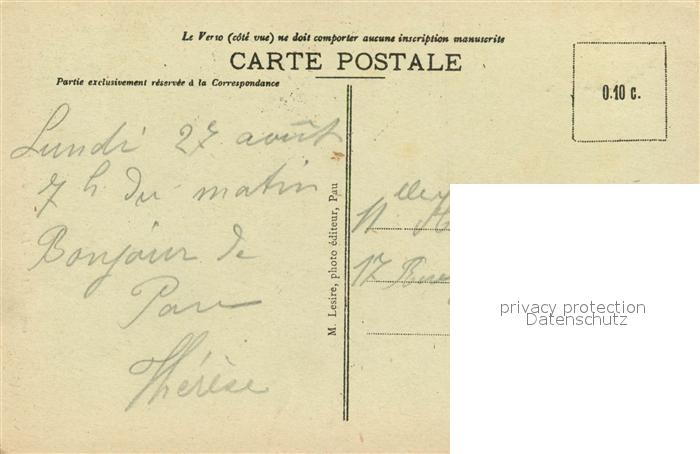 Le Verso (côté vue) ne doit comporter aucune inscription manuscrite
CARTE POSTALE
Partie exclusivement réservée à la Correspondance
0.10 c.
Lundi 27 août
7 h du matin
Bonjour de
Pau
Thérèse
M. Lesire, photo éditeur, Pau
Melle
17
privacy protection
Datenschutz